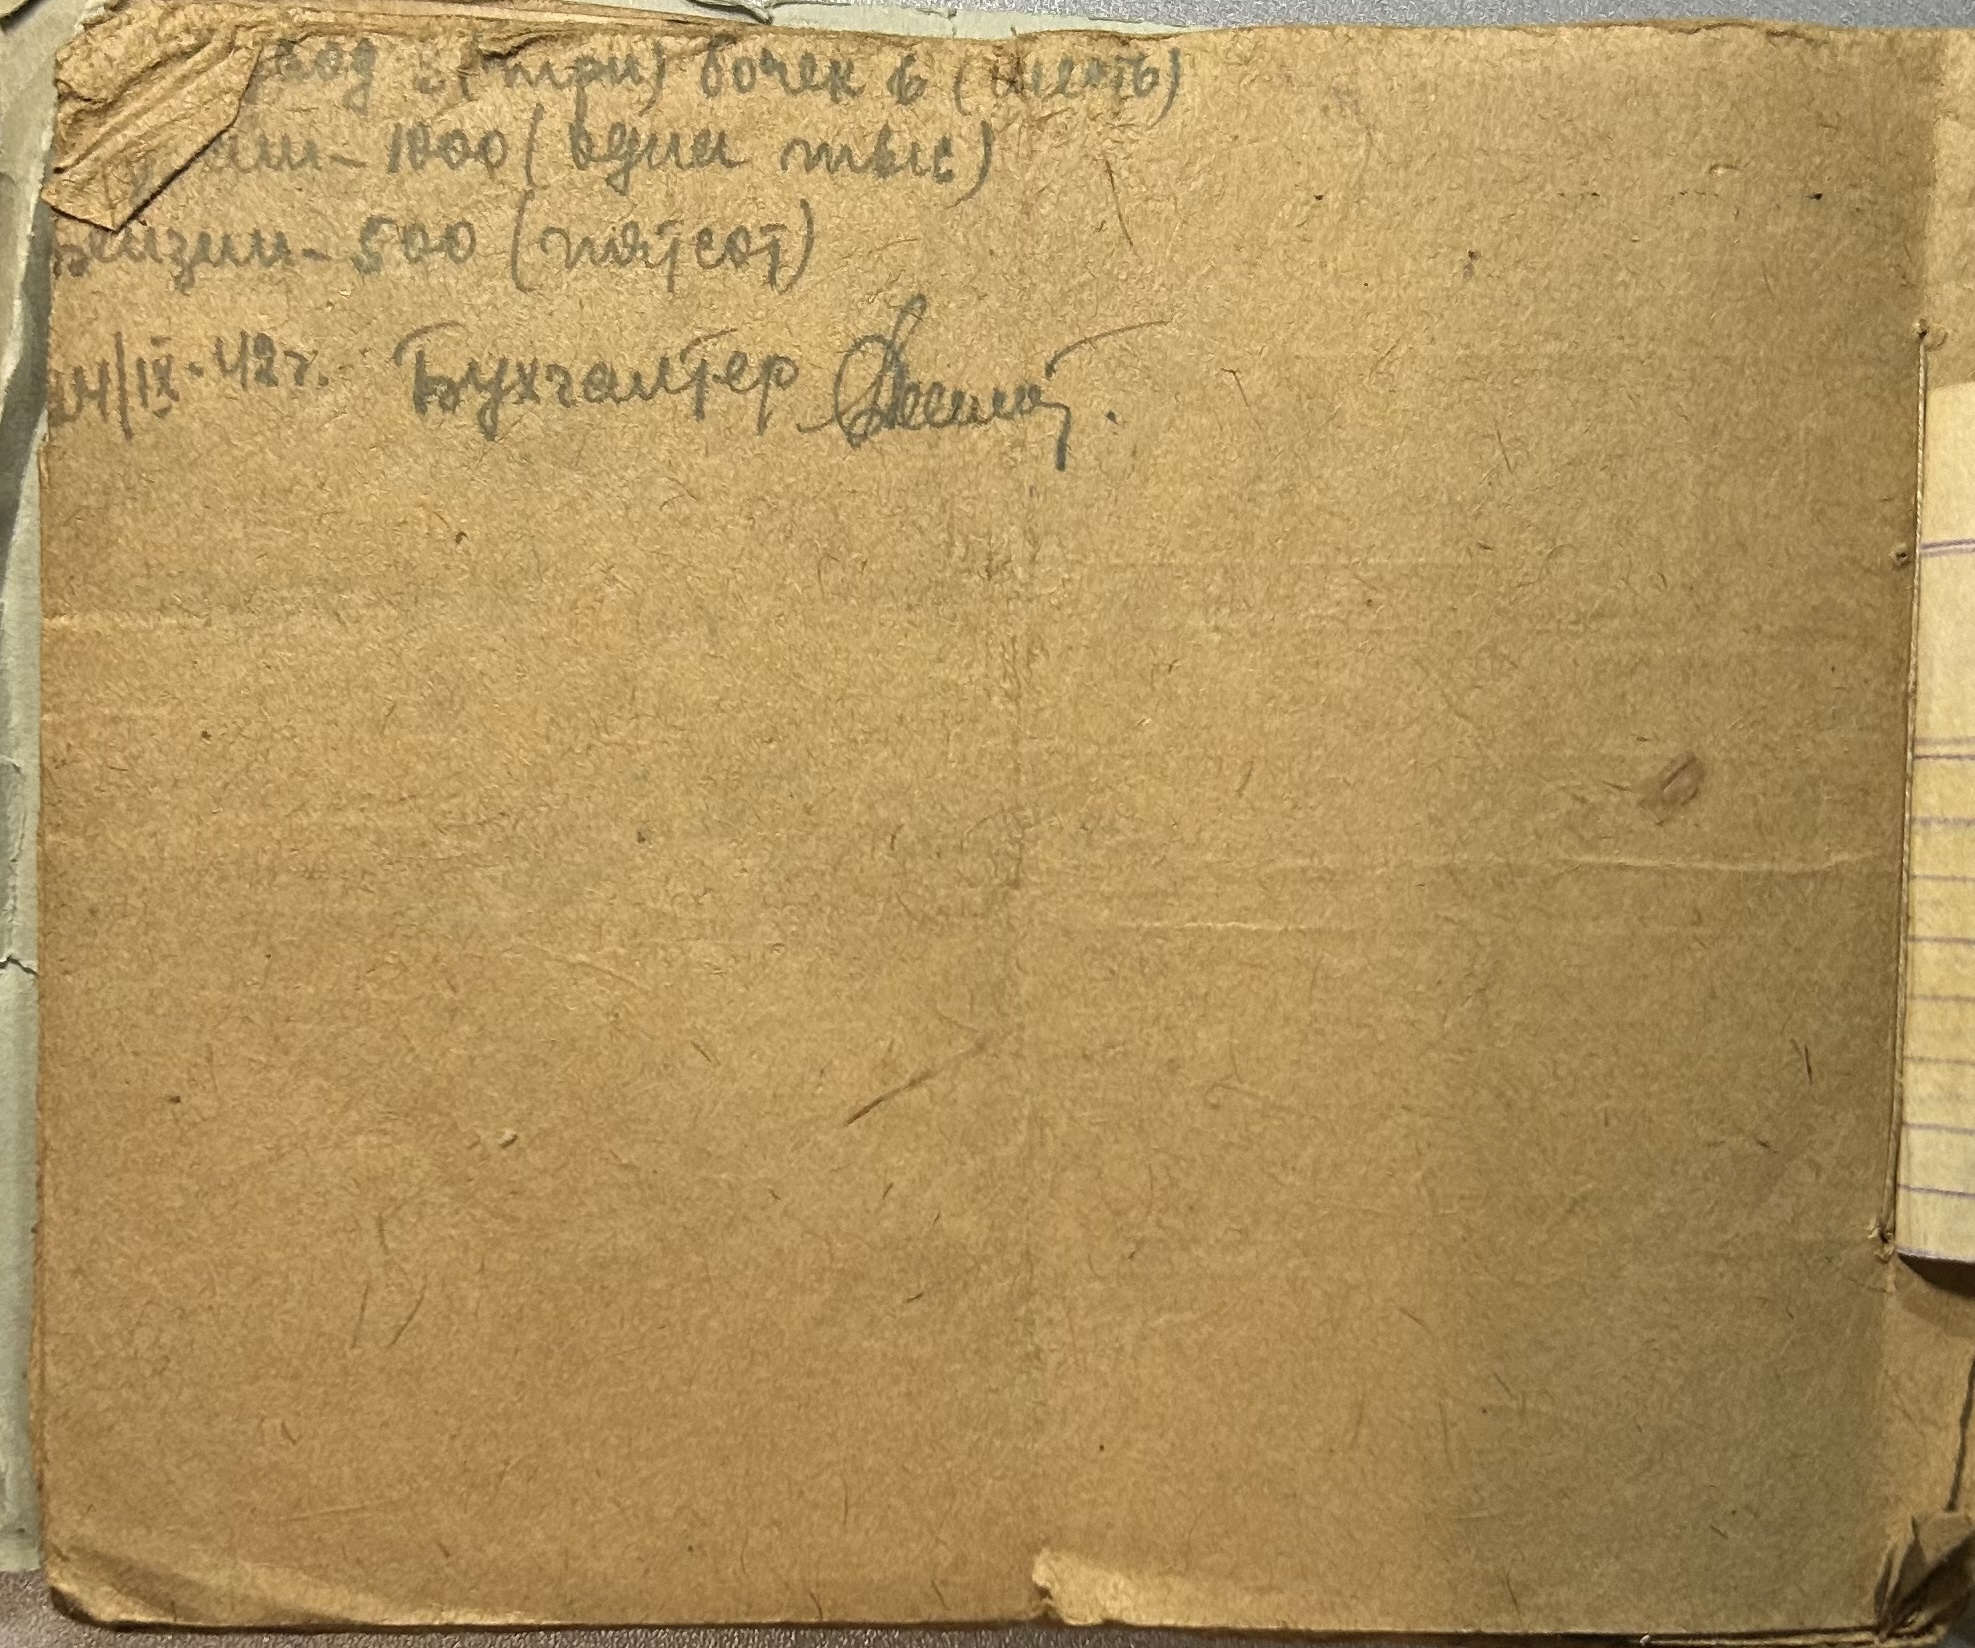 (три) бочек 6 (шесть)
1000 (одна тыс)
Бензин - 500 (пятсот)
24/IX - 42 г. Бухгалтер